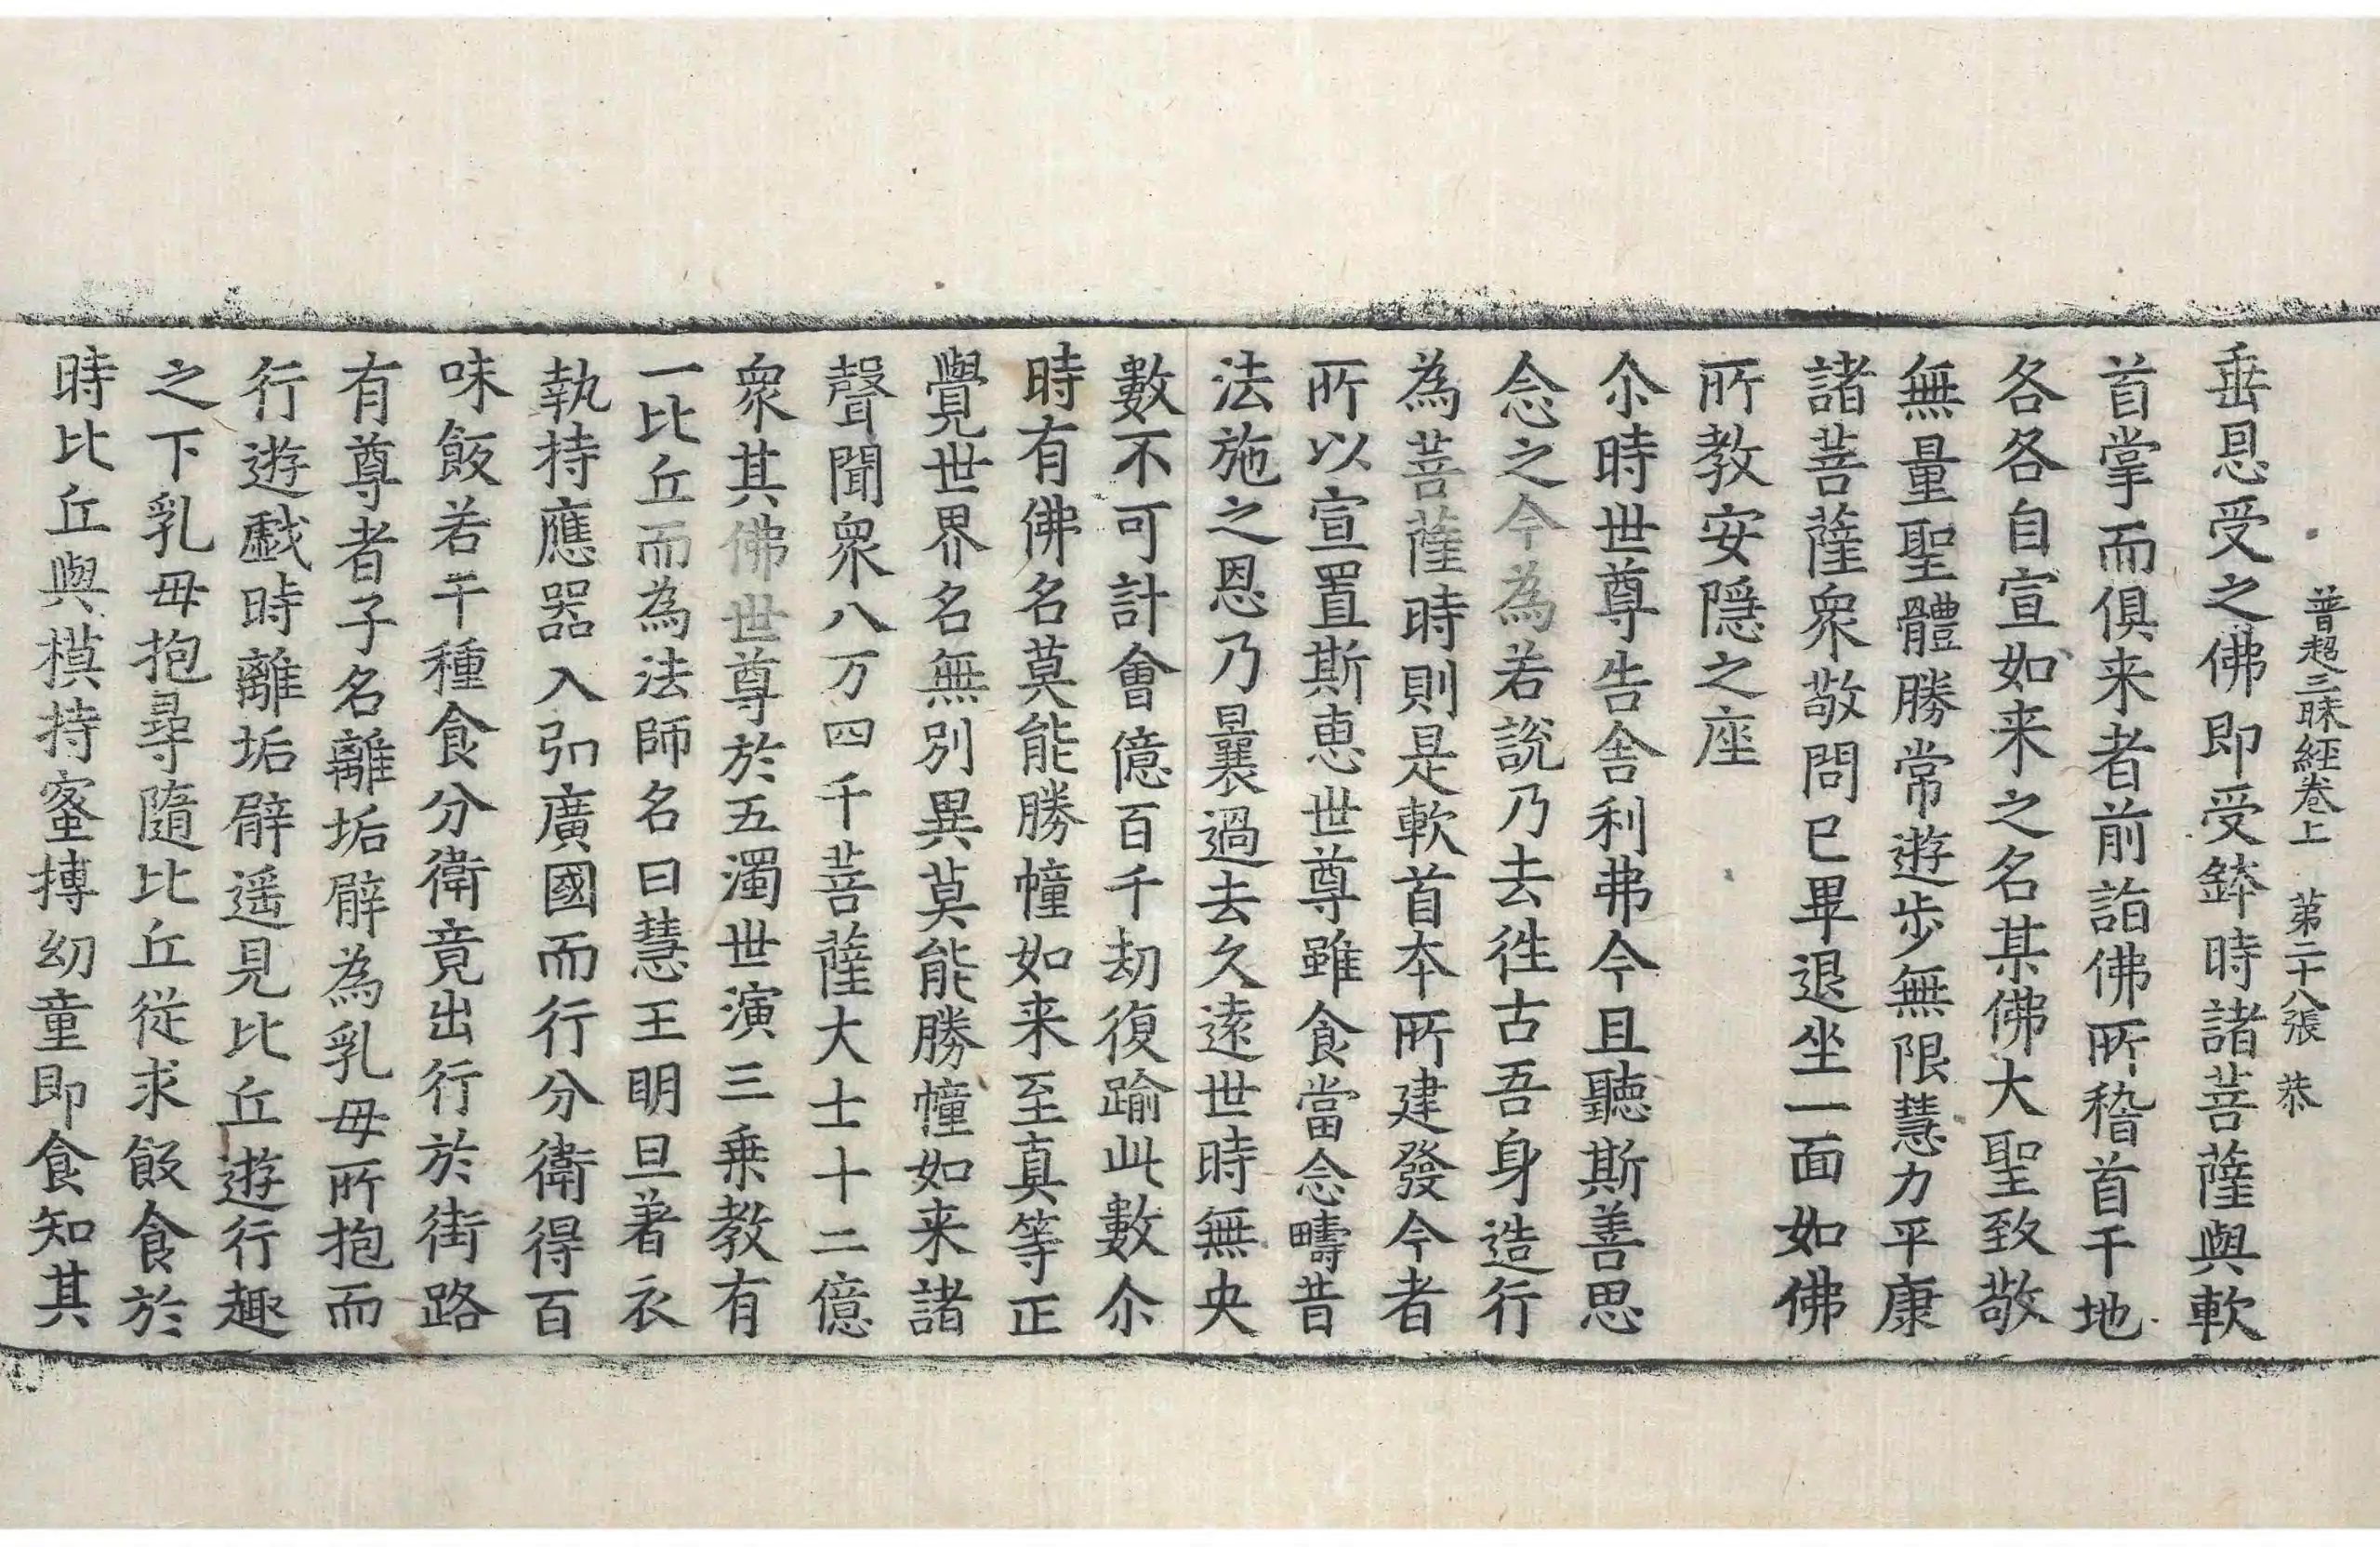 普超三昧經卷上 第二十八張 恭
垂恩受之佛即受鉢時諸菩薩與軟
首掌而俱来者前詣佛所稽首于地
各各自宣如来之名某佛大聖致敬
無量聖體勝常遊步無限慧力平康
諸菩薩衆敬問已畢退坐一面如佛
所教安隱之座
尒時世尊告舎利弗今且聽斯善思
念之今為若說乃去徃古吾身造行
為菩薩時則是軟首夲所建發今者
所以宣置斯恵世尊雖食當念疇昔
法施之恩乃曩過去久遠世時無央
數不可計會億百千劫復踰此數尒
時有佛名莫能勝幢如来至真等正
覺世界名無別異莫能勝幢如来諸
聲聞衆八万四千菩薩大士十二億
衆其佛世尊於五濁世演三乗教有
一比丘而為法師名曰慧王明旦著衣
執持應器入弘廣國而行分衛得百
味飯若干種食分衛竟出行於街路
有尊者子名離垢臂為乳母所抱而
行遊戱時離垢臂遥見比丘遊行趣
之下乳母抱尋隨比丘從求飯食於
時比丘與摸持蜜摶幼童即食知其